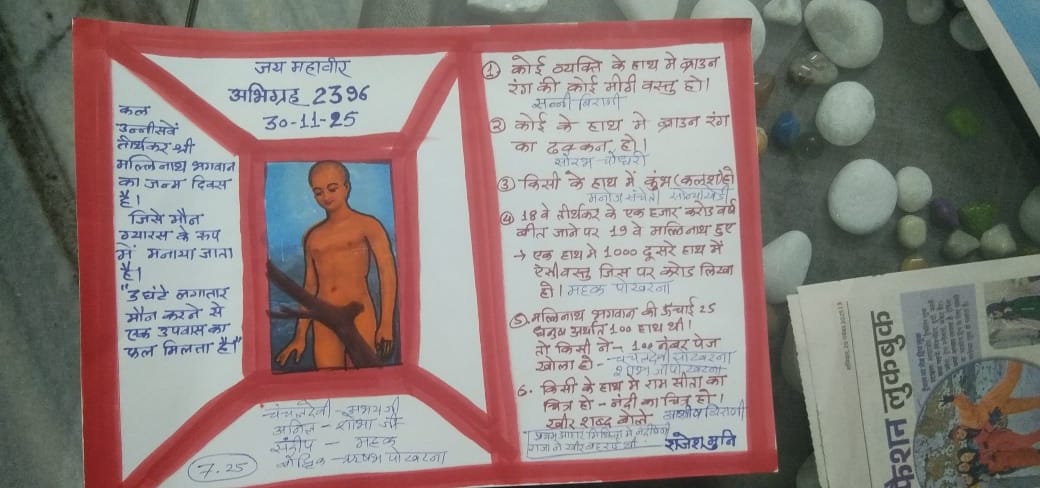 जय महावीर
अभिग्रह 2396
30-11-25
कल
उन्नीसवें
तीर्थंकर श्री
मल्लिनाथ भगवान
का जन्म दिवस
है।
जिसे मौन
ग्यारस के रूप
में मनाया जाता
है।
"3 घंटे लगातार
मौन करने से
एक उपवास का
फल मिलता है।"
चंचलदेवी
अमित - शोभा जी
संदीप - महक
कौशिक - ऋषभ पोखरना
7.25
① कोई व्यक्ति के हाथ मे ब्राउन
रंग की कोई मीठी वस्तु हो।
सन्नी बिराणी
② कोई के हाथ मे ब्राउन रंग
का ढक्कन हो।
सौरभ चौधरी
③ किसी के हाथ में कुंभ (कलश) हो
मनोज संचेती
④ 18 वे तीर्थंकर के एक हजार करोड वर्ष
बीत जाने पर 19 वे मल्लिनाथ हुए
→ एक हाथ मे 1000 दूसरे हाथ में
ऐसी वस्तु जिस पर करोड लिखा
हो। महक पोखरना
5. मल्लिनाथ भगवान की ऊंचाई 25
धनुष अर्थात 100 हाथ थी।
तो किसी ने - 100 नंबर पेज
खोला हो - चंचलदेवी पोखरना
शोभा जी पोखरना
6. किसी के हाथ मे राम सीता का
चित्र हो - नंदी का चित्र हो।
खीर शब्द बोले आशीष बिराणी
राजेश मुनि
फैशन लुकबुक